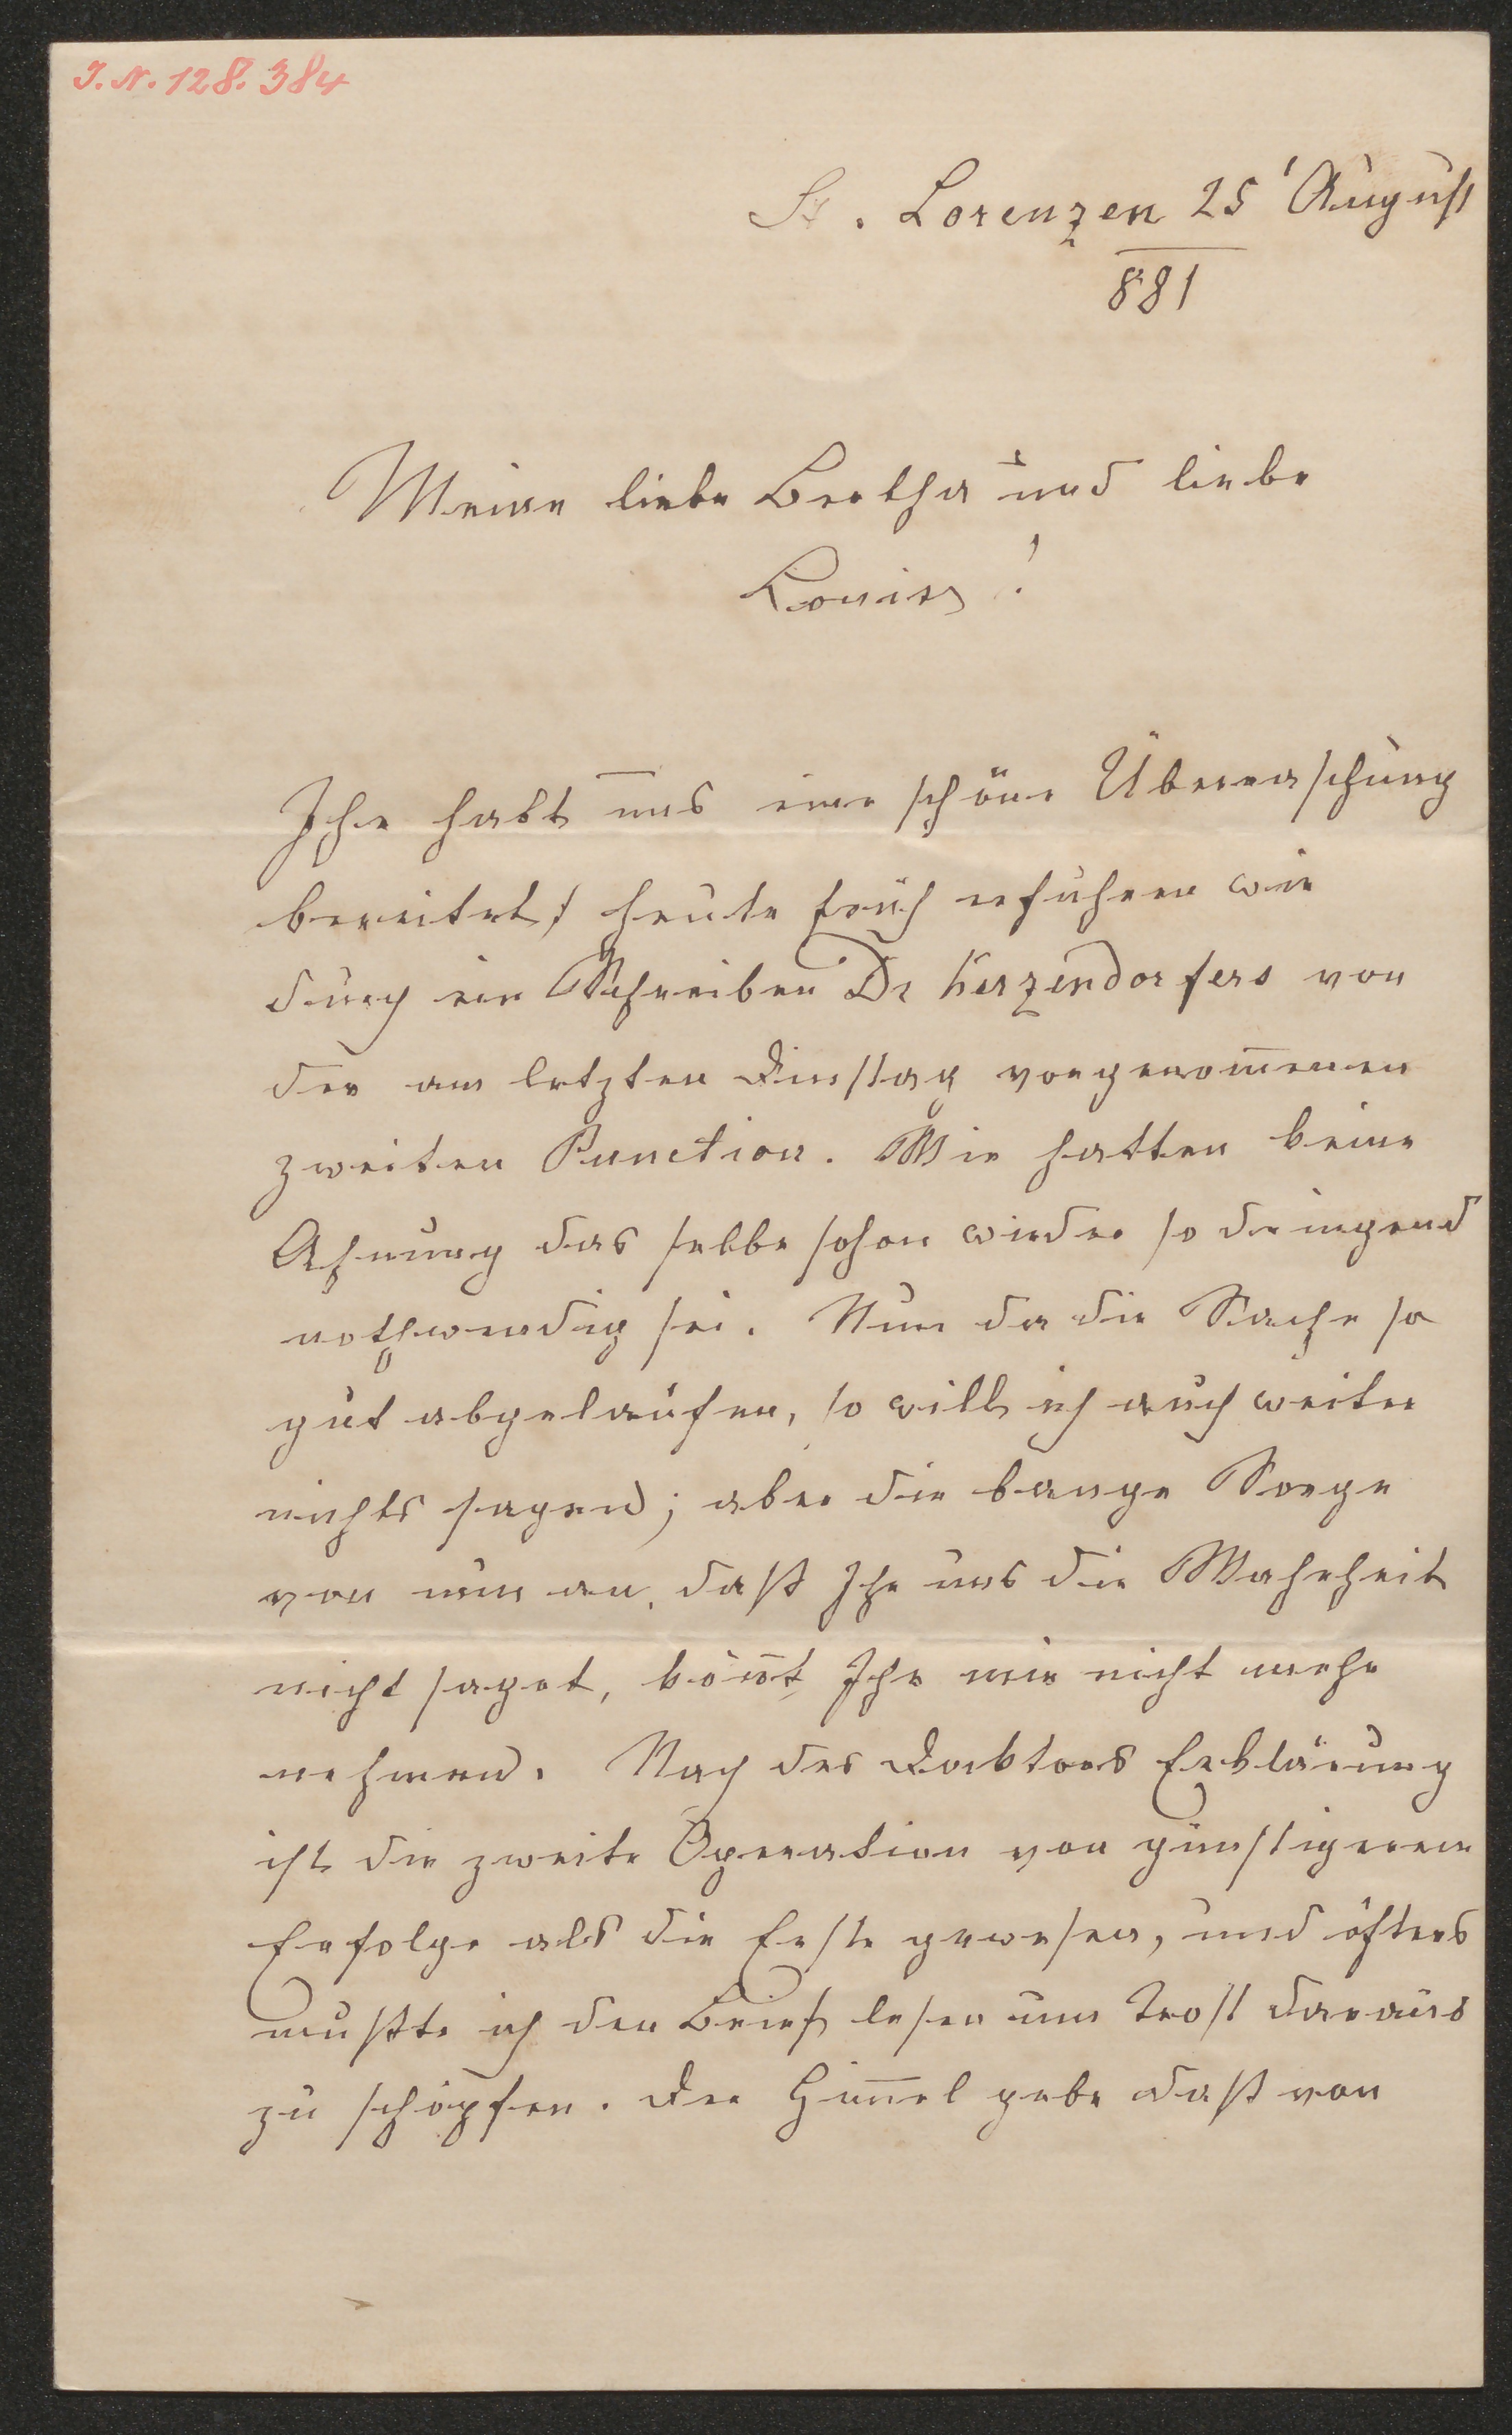 I. N. 128.384
St. Lorenzen 25' August
881
Meine liebe Bertha und liebe
Louise!
Ihr habt uns eine schöne Überraschung
bereitet, heute früh erfuhren wir
durch ein Schreiben Dr Kerzendorfers von
der am letzten Dinstag vorgenom̅enen
zweiten Punction. Wir hatten keine
Ahnung das selbe schon wieder so dringend
nothwendig sei. Nun da die Sache so
gut abgelaufen, so will ich auch weiter
nichts sagen; aber die bange Sorge
von nun an, daß Ihr uns die Wahrheit
nicht saget, kön̅t Ihr mir nicht mehr
nehmen. Nach des Doktors Erklärung
ist die zweite Operation von günstigerem
Erfolge als die Erste gewesen, und öfters
mußte ich den Brief lesen um Trost daraus
zu schöpfen. Der Him̅el gebe daß von